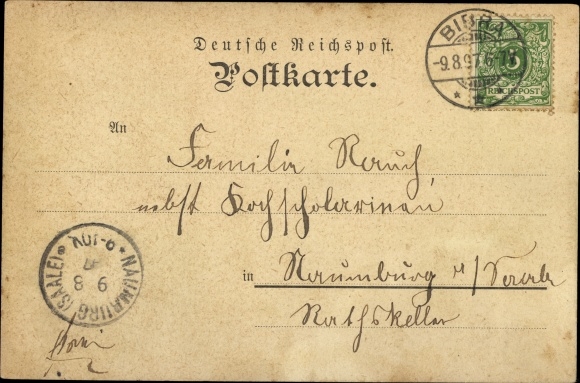 Deutsche Reichspost.
Postkarte.
BIBRA
-9.8.97.6-7N
5
REICHSPOST
An
Familie Rauch,
nebst Kochscholarinen
in Naumburg a/Saale
Rathskeller
NAUMBURG (SAALE)
9 8